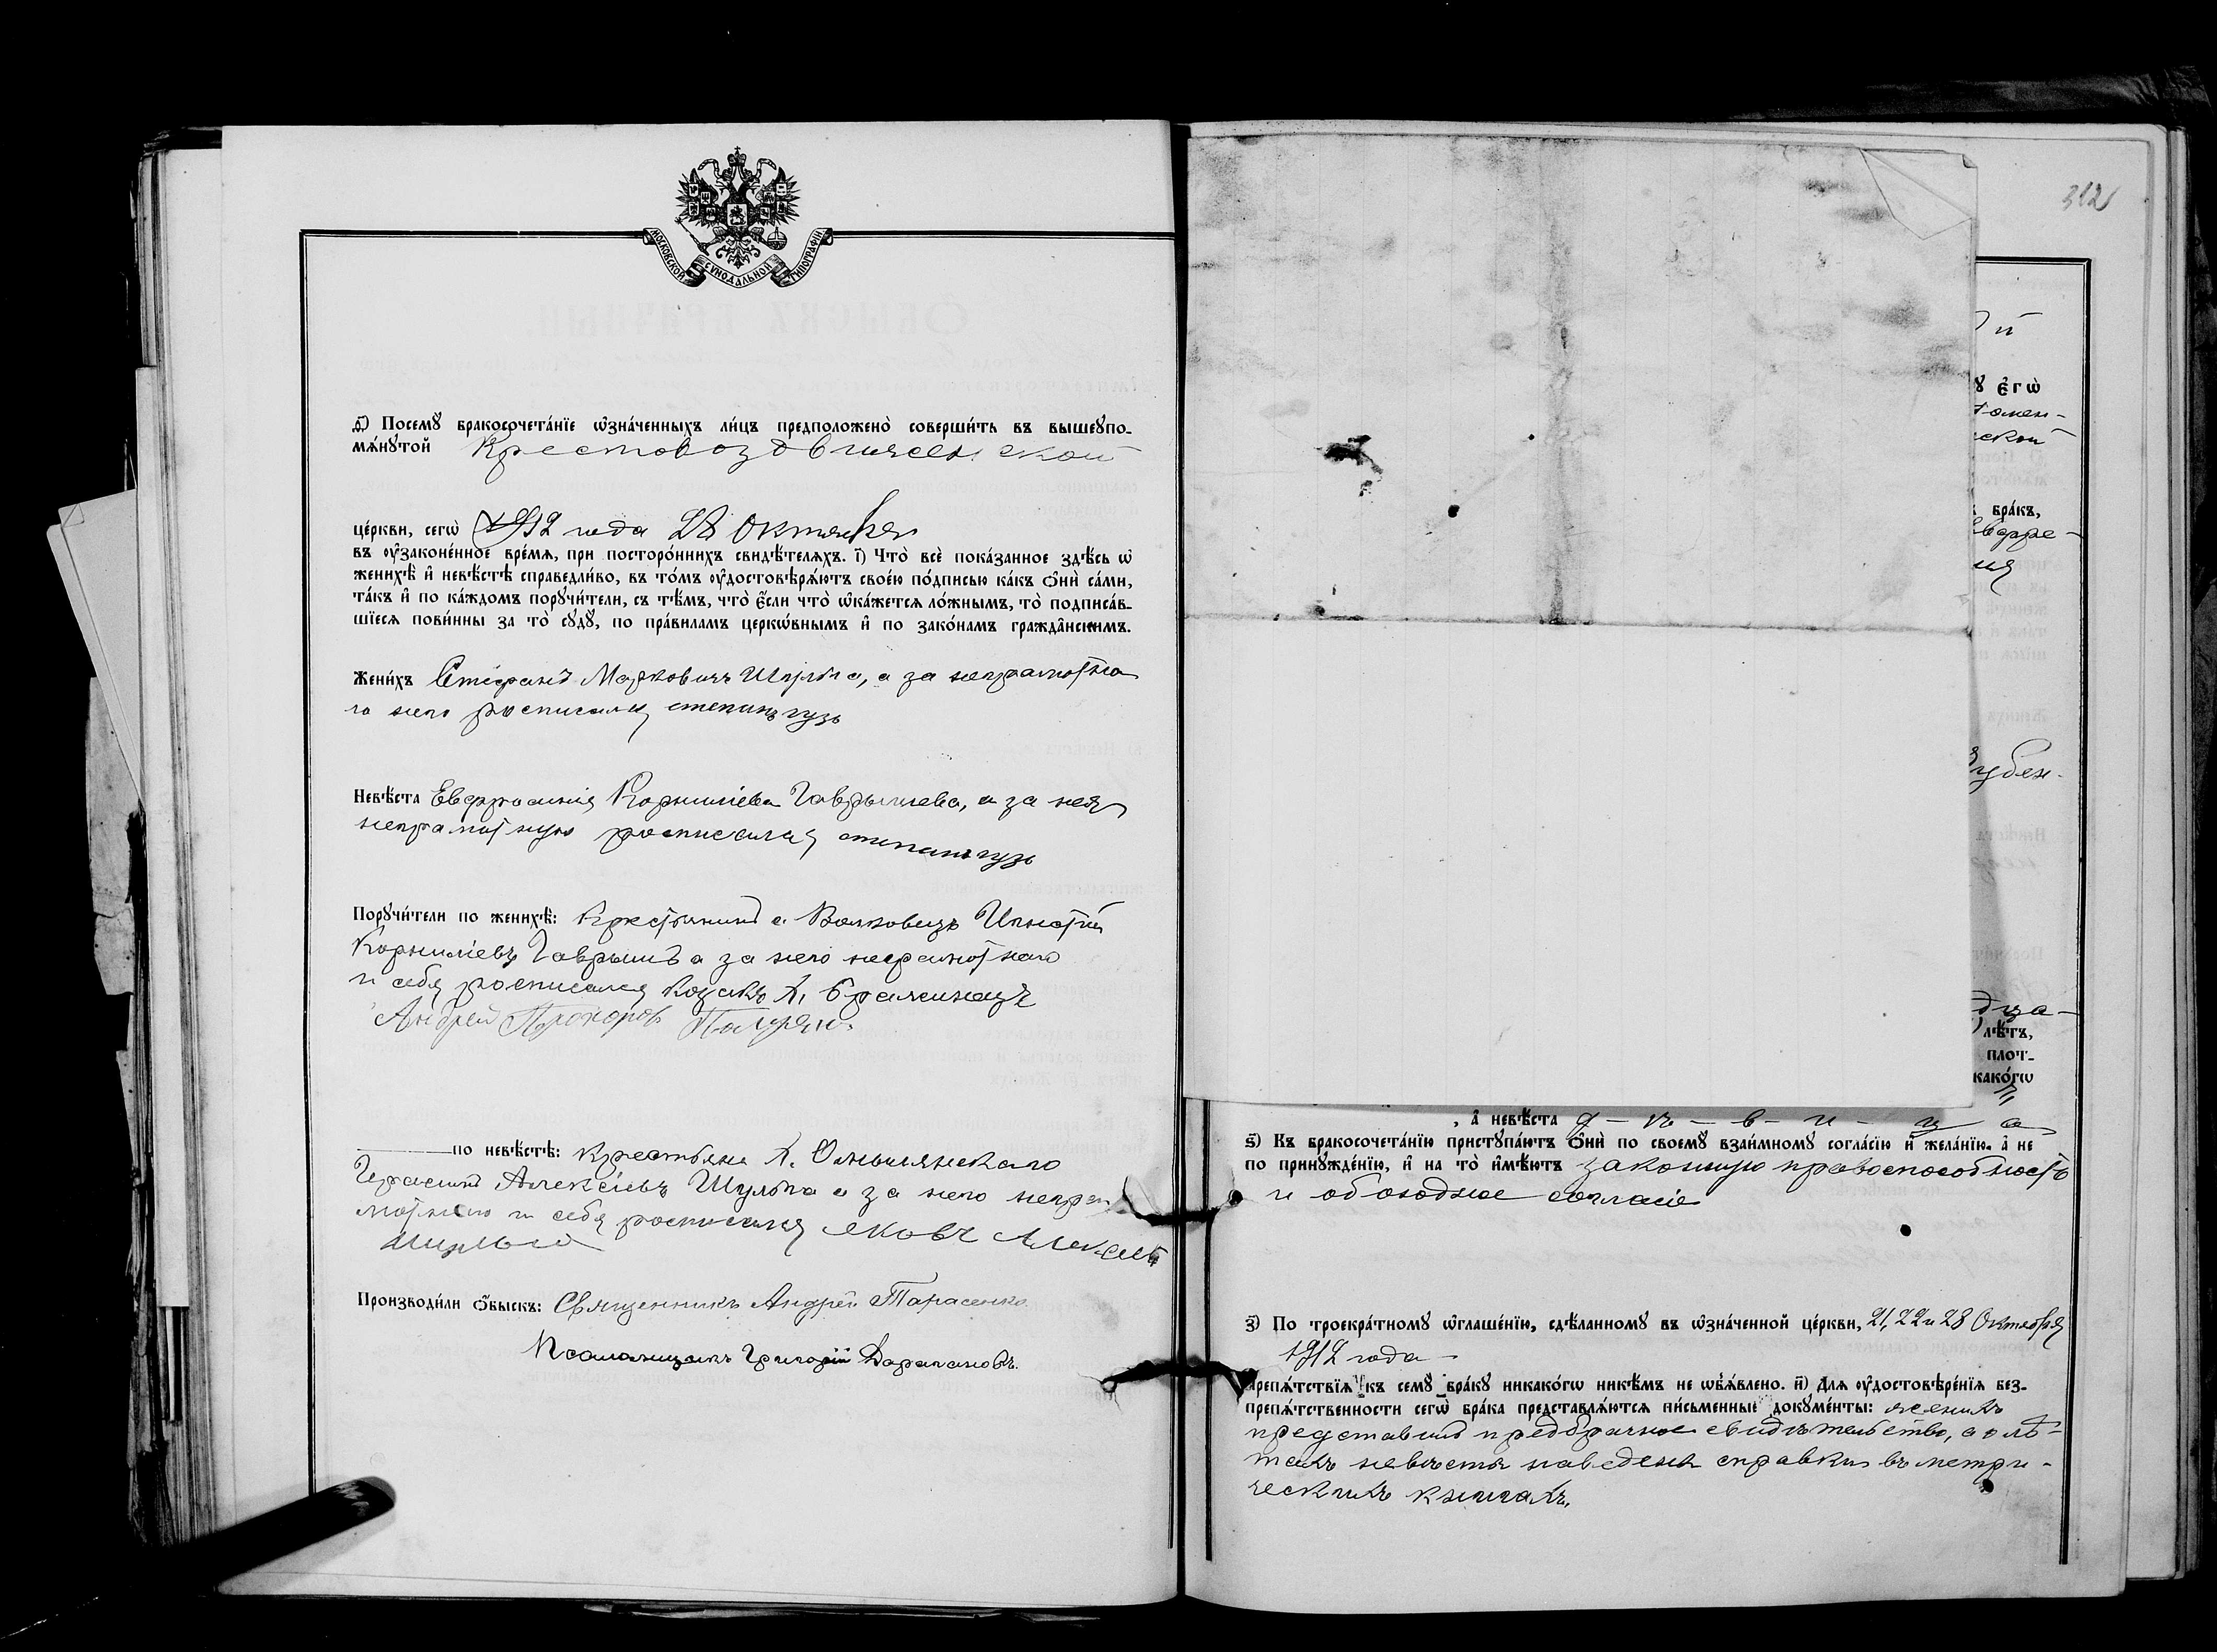 МОСКОВСКОЙ СУНОДАЛЬНОЙ ТИПОГРАФІИ
д҃) Посемꙋ̀ бракосочета́нїе ѡ҆зна́ченныхъ ли́цъ предположено̀ соверши́ть въ вышеꙋпо-
мѧ́нꙋтой Крестовоздвиженской
це́ркви, сегѡ̀ 1912 года 28 Октября
въ ᲂу҆законе́нное вре́мѧ, при посторо́ннихъ свидѣ́телѧхъ. і҃) Что̀ всѐ пока́занное здѣ́сь ѡ҆
женихѣ̀ и҆ невѣ́стѣ справедли́во, въ то́мъ ᲂу҆достовѣрѧ́ютъ свое́ю по́дписью ка́къ ѻ҆нѝ са́ми,
та́къ и҆ по ка́ждомъ порꙋчи́тели, съ тѣ́мъ, что̀ є҆́сли что̀ ѡ҆ка́жетсѧ ло́жнымъ, то̀ подписа́в-
шїесѧ пови́нны за то̀ сꙋдꙋ̀, по пра́виламъ церкѡ́внымъ и҆ по зако́намъ гражда̂нскимъ.
Жени́хъ Стефанъ Марковичъ Шульга, а за неграмотна
го него росписался степанъ гузь
Невѣ́ста Евфросинія Корниліева Гаврышева, а за нея
неграмотную росписался степанъ гузь
Порꙋчи́тели по женихѣ̀: Крестьянинъ с
Корниліевъ Гаврышъ а за него неграмотнаго
и себя росписался козакъ х.
Андрей Прохоровъ
по невѣ́стѣ: крестьяне х.
Герасимъ Алексіевъ Шульга а за него негра
мотнаго и себя росписался яковъ Алексѣевъ
шульга
Производи́ли ѻ҆́быскъ: Священникъ Андрей Тарасенко.
Псаломщикъ Григорій
312
й
ꙋ є҆гѡ̀
ской
бра́къ,
Евфро-
нія
дца-
лѣ́тъ,
плот-
како́гѡ
, а҆ невѣ́ста д - ѣ - в - и - ц - а
ѕ҃) Къ бракосочета́нїю пристꙋпа́ютъ ѻ҆нѝ по своемꙋ̀ взаи́мномꙋ согла́сїю и҆ жела́нїю, а҆ не
по принꙋжде́нїю, и҆ на то̀ и҆мѣ́ютъ законную правоспособность
и обоюдное согласіе
з҃) По троекра́тномꙋ ѡ҆глаше́нїю, сдѣ́ланномꙋ въ ѡ҆зна́ченной це́ркви, 21, 22 и 28 Октября
1912 года
препѧ́тствїѧ къ семꙋ̀ бра́кꙋ никако́гѡ никѣ́мъ не ѡ҆б̾ѧ́влено. и҃) Длѧ ᲂу҆достовѣре́нїѧ без-
препѧ́тственности сегѡ̀ бра́ка представлѧ́ютсѧ пи́сьменные докꙋме́нты: женихъ
представилъ предбрачное свидѣтельство, а о лѣ-
тахъ невѣсты наведена справка въ метри-
ческихъ книгахъ.